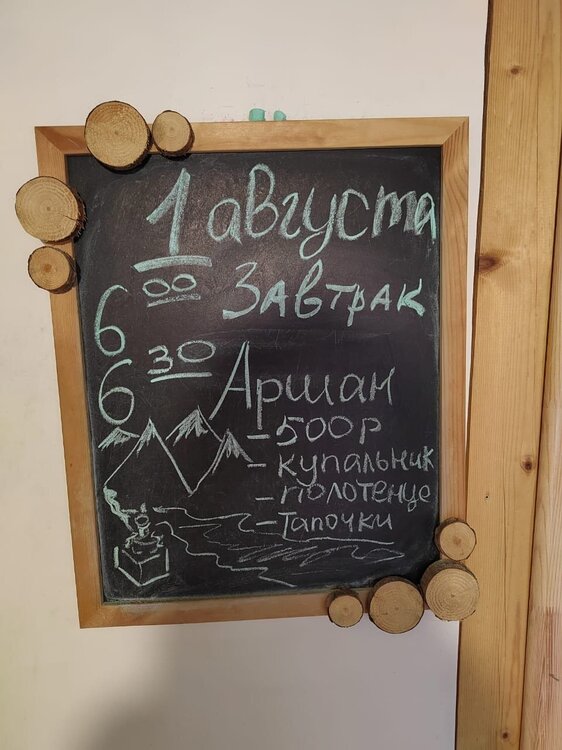 1 августа
6 00 Завтрак
6 30 Аршан
- 500р
- купальник
- полотенце
- Тапочки